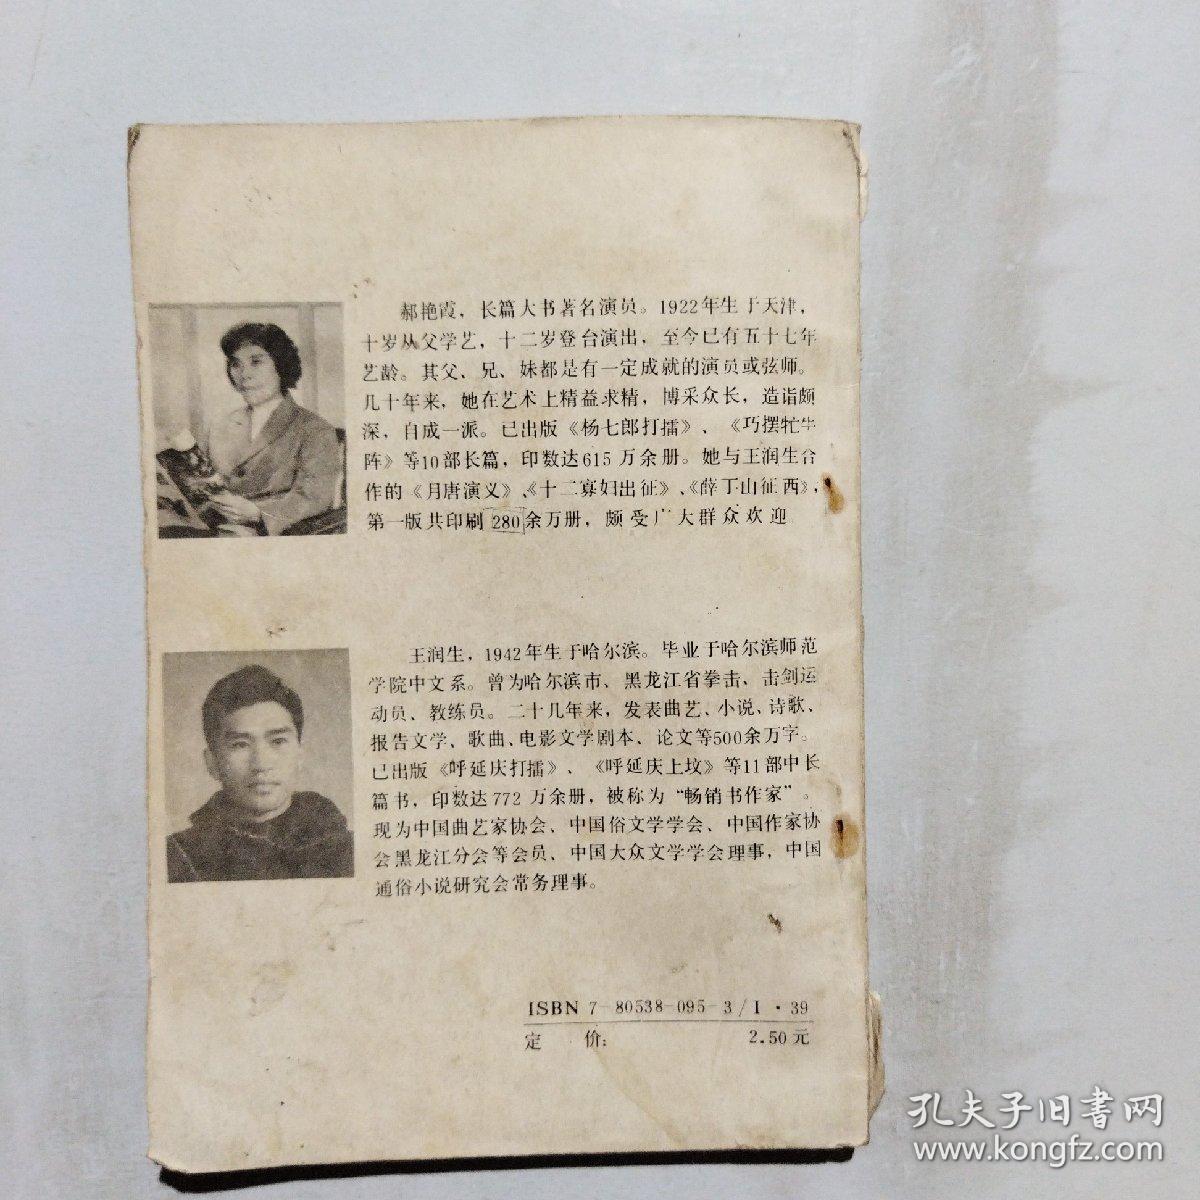 郝艳霞，长篇大书著名演员。1922年生于天津，
十岁从父学艺，十二岁登台演出，至今已有五十七年
艺龄。其父、兄、妹都是有一定成就的演员或弦师。
几十年来，她在艺术上精益求精，博采众长，造诣颇
深，自成一派。已出版《杨七郎打擂》、《巧摆牤牛
阵》等10部长篇，印数达615万余册。她与王润生合
作的《月唐演义》、《十二寡妇出征》、《薛丁山征西》，
第一版共印刷280余万册，颇受广大群众欢迎
王润生，1942年生于哈尔滨。毕业于哈尔滨师范
学院中文系。曾为哈尔滨市、黑龙江省拳击、击剑运
动员、教练员。二十几年来，发表曲艺、小说、诗歌、
报告文学、歌曲、电影文学剧本、论文等500余万字。
已出版《呼延庆打擂》、《呼延庆上坟》等11部中长
篇书，印数达772万余册，被称为“畅销书作家”。
现为中国曲艺家协会、中国俗文学学会、中国作家协
会黑龙江分会等会员、中国大众文学学会理事，中国
通俗小说研究会常务理事。
ISBN 7-80538-095-3/I·39
定 价： 2.50元
孔夫子旧書网
www.kongfz.com